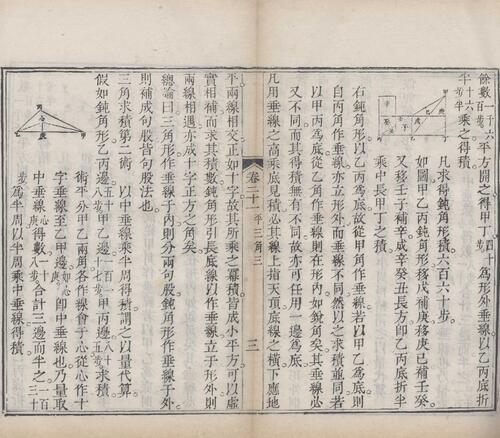 平方開之得甲丁 為形外垂線以乙丙底折
半 乘之得積
凡求得鈍角形積六百六十步
如圖甲乙丙鈍角形移戊補庚移庚已補壬癸
又移壬子補辛成辛癸丑長方即乙丙底折半
乘中長甲丁之積
右鈍角形以乙丙為底故從甲角作垂線若以甲乙為底則
自丙角作垂線亦立形外而垂線不同然以之求積並同若
以甲丙為底從乙角作垂線則在形內如銳角矣其垂線必
又不同而其得積無有不同故亦可任用一邊為底
凡用垂線之高乘底見積必其線上指天頂底線之橫下應地
卷二十一 平三角三 三
平兩線相交正如十字故其所乘之冪積皆成小平方可以虛
實相補而求其積數鈍角形引長底線以作垂線立于形外則
兩線相遇亦成十字正方之角矣
總論曰三角形作垂線于內則分兩句股鈍角形作垂線于外
則補成句股皆句股法也
三角求積第二術 以中垂線乘半周得積謂之以量代算
假如鈍角形乙丙邊 甲乙邊 甲丙邊八十五步求積
術平分甲乙兩角各作線會于心從心作十
字垂線至乙甲邊如心庚即中垂線也乃量取
中垂線心庚得數 合計三邊而半之
步為半周以半周乘中垂線得積